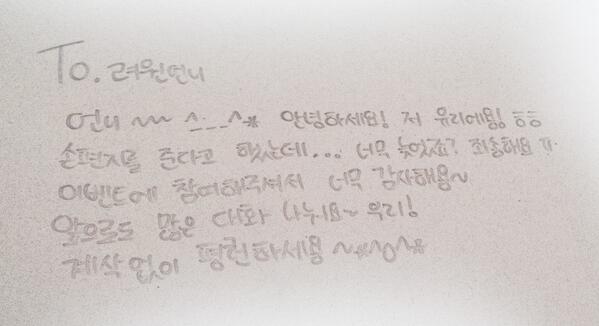 To. 려원언니
언니 ~~ ^---^* 안녕하세요! 저 유리에용! ㅎㅎ
손편지를 준다고 했는데... 너무 늦었죠? 죄송해요 ㅠ.
이벤트에 참여해주셔서 너무 감사해용~
앞으로도 많은 대화 나눠요~ 우리!
계삭없이 평펀하세용 ~*^o^*